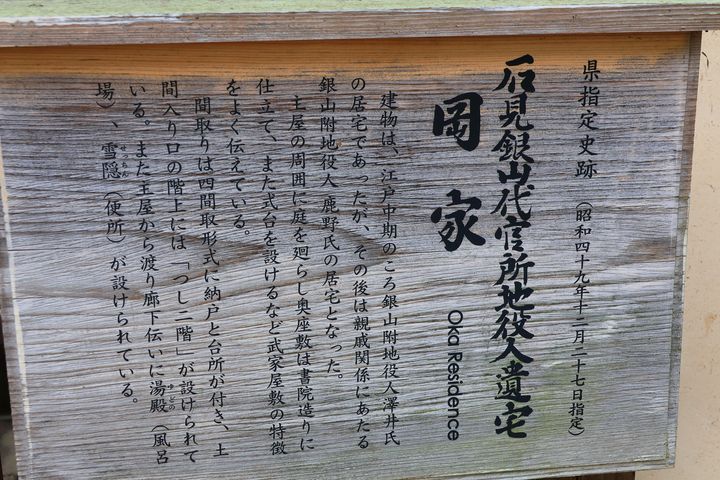 県指定史跡 (昭和四十九年十二月二十七日指定)
石見銀山代官所地役人遺宅
岡家
Oka Residence
建物は、江戸中期のころ銀山附地役人澤井氏
の居宅であったが、その後は親戚関係にあたる
銀山附地役人鹿野氏の居宅となった。
主屋の周囲に庭を廻らし奥座敷は書院造りに
仕立て、また式台を設けるなど武家屋敷の特徴
をよく伝えている。
間取りは四間取形式に納戸と台所が付き、土
間入り口の階上には「つし二階」が設けられて
いる。また主屋から渡り廊下伝いに湯殿(風呂
ゆどの
場)、雪隠(便所)が設けられている。
せっちん